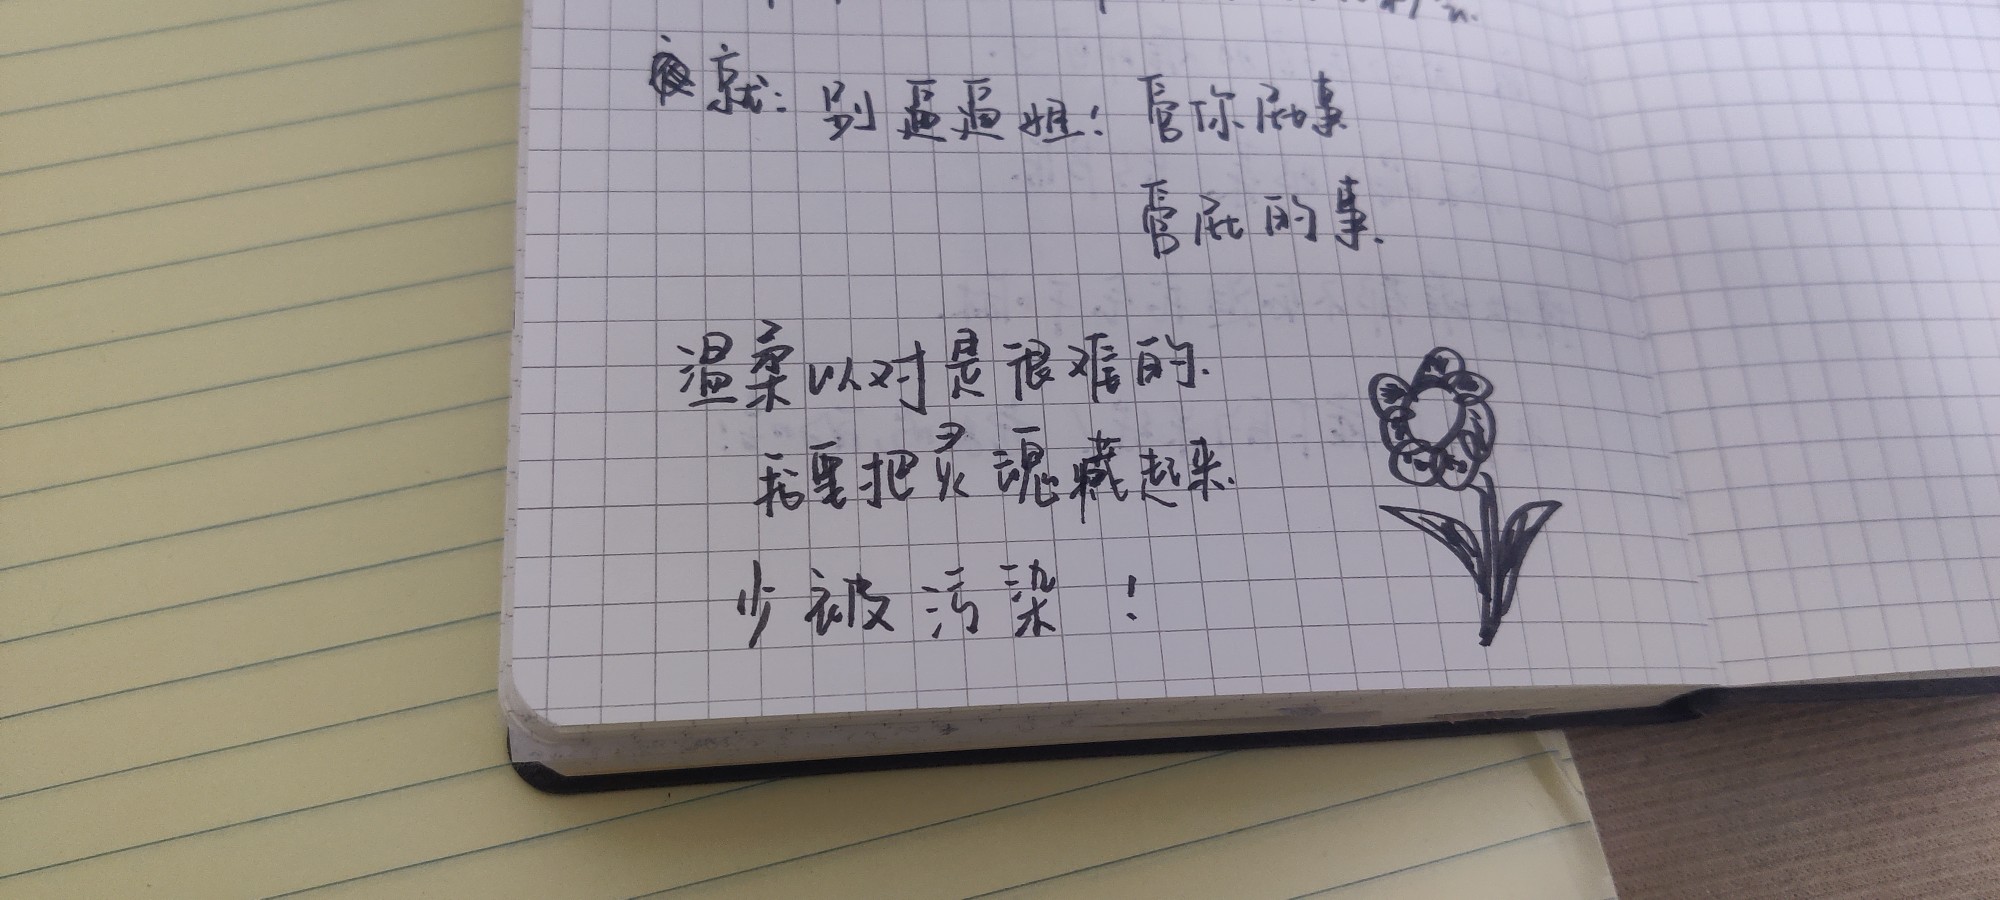 就：别逼逼难！管你屁事
管屁的事.
温柔以对是很难的.
我要把灵魂藏起来.
少被污染！